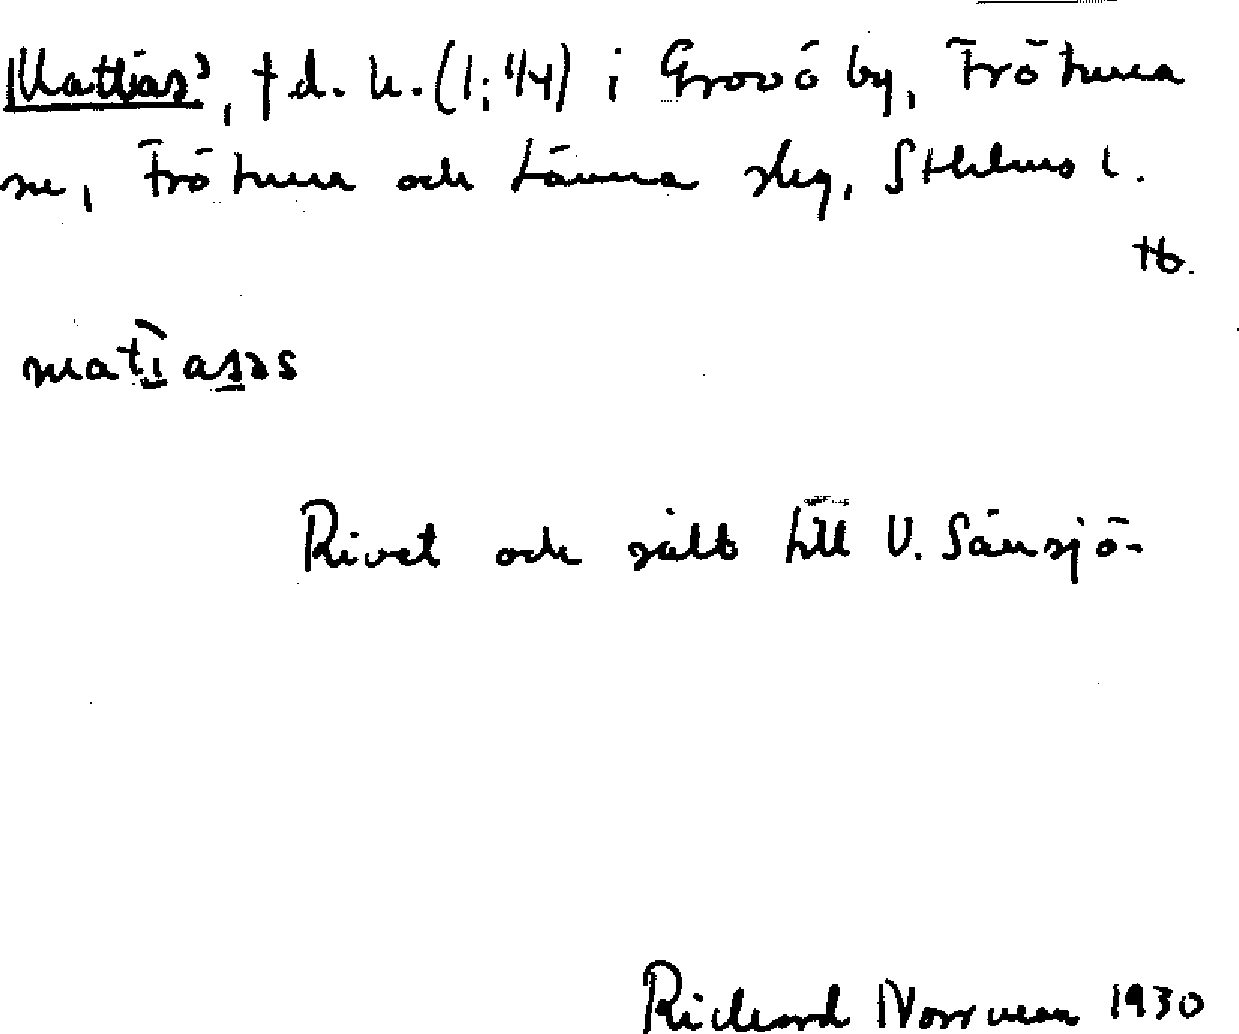 Mattias', † d. h. (1: 1/4) i Grovö by, Frötuna
sn, Frötuna och Länna skg, Sthlms l.
Hb.
matiasəs
Rivet och sålt till V. Sänsjö-
Richard Norrman 1930